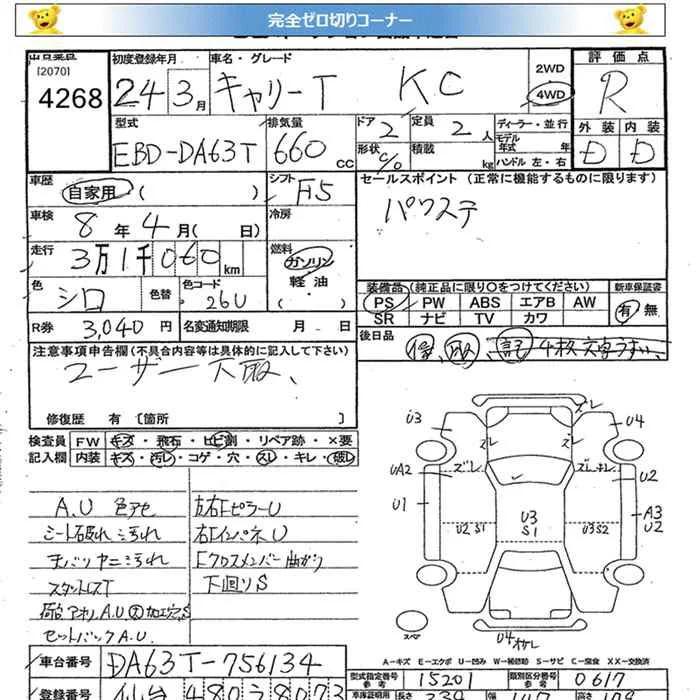 完全ゼロ切りコーナー
出品番号 初度登録年月 車名・グレード 2WD 評価点
[2070] 4268 24 3月 キャリーT KC 4WD R
型式 排気量 ドア 2 定員 2人 ディーラー・並行 外装 内装
EBD-DA63T 660 CC 形状 積載 kg モデル年式 年 D D
ハンドル 左・右
車歴 自家用 ( ) シフト F5 セールスポイント (正常に機能するものに限ります)
車検 8年4月( 日) 冷房 パワステ
走行 3万1千060km 燃料 ガソリン
色 シロ 色替 色コード 26U 軽油 ( )
装備品 (純正品に限り○をつけてください) 新車保証書
PS PW ABS エアB AW 有 無
SR ナビ TV カワ
R券 3,040円 名変通知期限 月 日 後日品 保、取、記 4枚文字うすい
注意事項申告欄(不具合内容等は具体的に記入して下さい)
ユーザー下取、
修復歴 有 [箇所 ]
検査員 FW キズ・飛石・ヒビ割・リペア跡・×要
記入欄 内装 キズ・汚レ・コゲ・穴・スレ・キレ・破レ
A.U 色アセ
シート破れ 汚れ
天バリ ヤニ汚れ
スタットレスT
荷台アオリ A.U 大 加工穴 S
セットバックA.U.
左右FピラーU
右FインパネU
Fクロスメンバー曲がり
下回りS
U3 ズレ U4
ズレ ズレ
UA2 ズレ ズレ U2
U1 U2 S1 U3 S1 U3 S2 A3 U2
スペア U4
A-キズ E-エクボ U-凹み W-補修跡 S-サビ C-腐食 XX-交換
車台番号 DA63T-756134 型式指定番号 15201 類別区分番号 0617
登録番号 仙台 480 8073